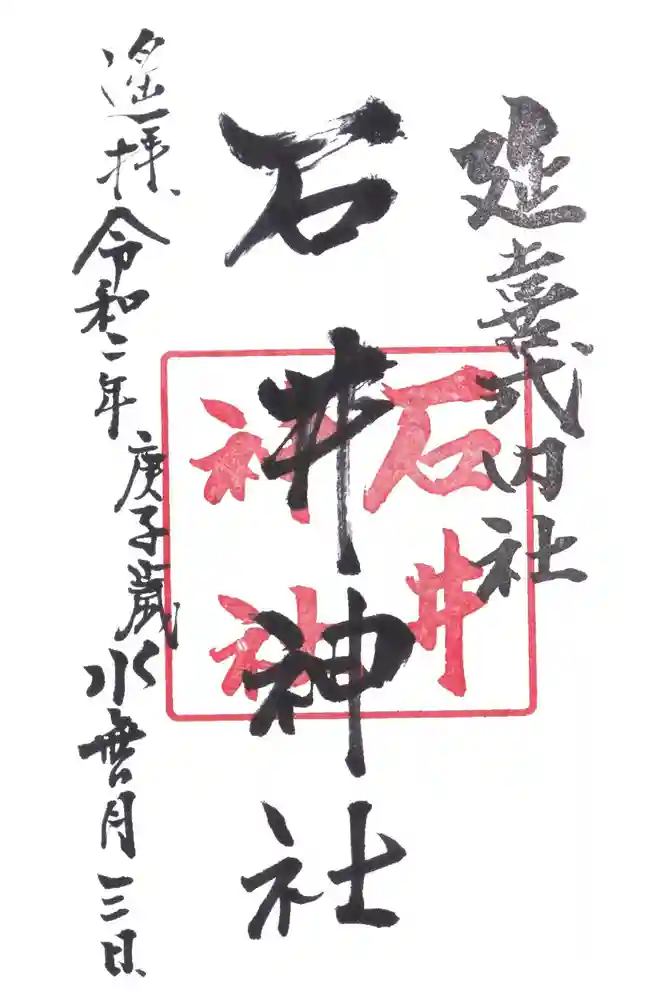 延喜式内社
石井神社
石井神社
遙拝 令和二年 庚子歳 水無月三日